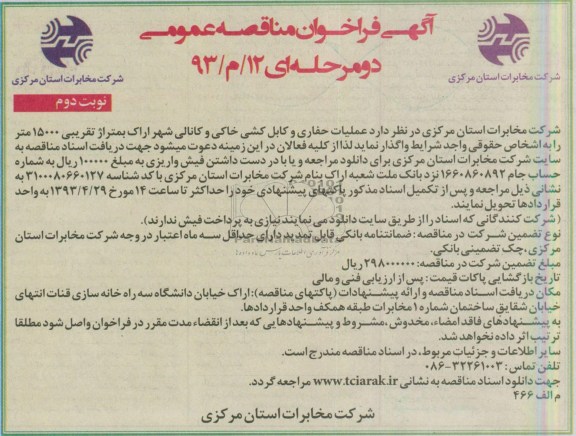 آگهی فراخوان مناقصه عمومی
دومرحله‌ای ۱۲/م/۹۳
شرکت مخابرات استان مرکزی
شرکت مخابرات استان مرکزی
نوبت دوم
شرکت مخابرات استان مرکزی در نظر دارد عملیات حفاری و کابل کشی خاکی و کانالی شهر اراک بمتراژ تقریبی ۱۵۰۰۰ متر
را به اشخاص حقوقی واجد شرایط واگذار نماید لذا از کلیه فعالان در این زمینه دعوت میشود جهت دریافت اسناد مناقصه به
سایت شرکت مخابرات استان مرکزی برای دانلود مراجعه و یا با در دست داشتن فیش واریزی به مبلغ ۱۰۰۰۰۰ ریال به شماره
حساب جام ۱۶۶۰۸۶۰۸۹۲ نزد بانک ملت شعبه اراک بنام شرکت مخابرات استان مرکزی با کد شناسه ۳۱۰۰۰۸۰۶۶۰۱۲۷ به
نشانی ذیل مراجعه و پس از تکمیل اسناد مذکور پاکتهای پیشنهادی خود را حداکثر تا ساعت ۱۴ مورخ ۱۳۹۳/۴/۲۹ به واحد
قراردادها تحویل نمایند.
(شرکت کنندگانی که اسناد را از طریق سایت دانلود می نمایند نیازی به پرداخت فیش ندارند).
نوع تضمین شرکت در مناقصه: ضمانتنامه بانکی قابل تمدید دارای حداقل سه ماه اعتبار در وجه شرکت مخابرات استان
مرکزی، چک تضمینی بانکی.
مبلغ تضمین شرکت در مناقصه: ۲۹۸۰۰۰۰۰۰ ریال
تاریخ بازگشایی پاکات قیمت: پس از ارزیابی فنی و مالی
مکان دریافت اسناد مناقصه و ارائه پیشنهادات (پاکتهای مناقصه): اراک خیابان دانشگاه سه راه خانه سازی قنات انتهای
خیابان شقایق ساختمان شماره ۱ مخابرات طبقه همکف واحد قراردادها.
به پیشنهادهای فاقد امضاء، مخدوش، مشروط و پیشنهادهایی که بعد از انقضاء مدت مقرر در فراخوان واصل شود مطلقا
ترتیب اثر داده نخواهد شد.
سایر اطلاعات و جزئیات مربوط، در اسناد مناقصه مندرج است.
تلفن تماس: ۳۲۲۶۱۰۰۳-۰۸۶
جهت دانلود اسناد مناقصه به نشانی www.tciarak.ir مراجعه گردد.
م الف ۴۶۶
شرکت مخابرات استان مرکزی